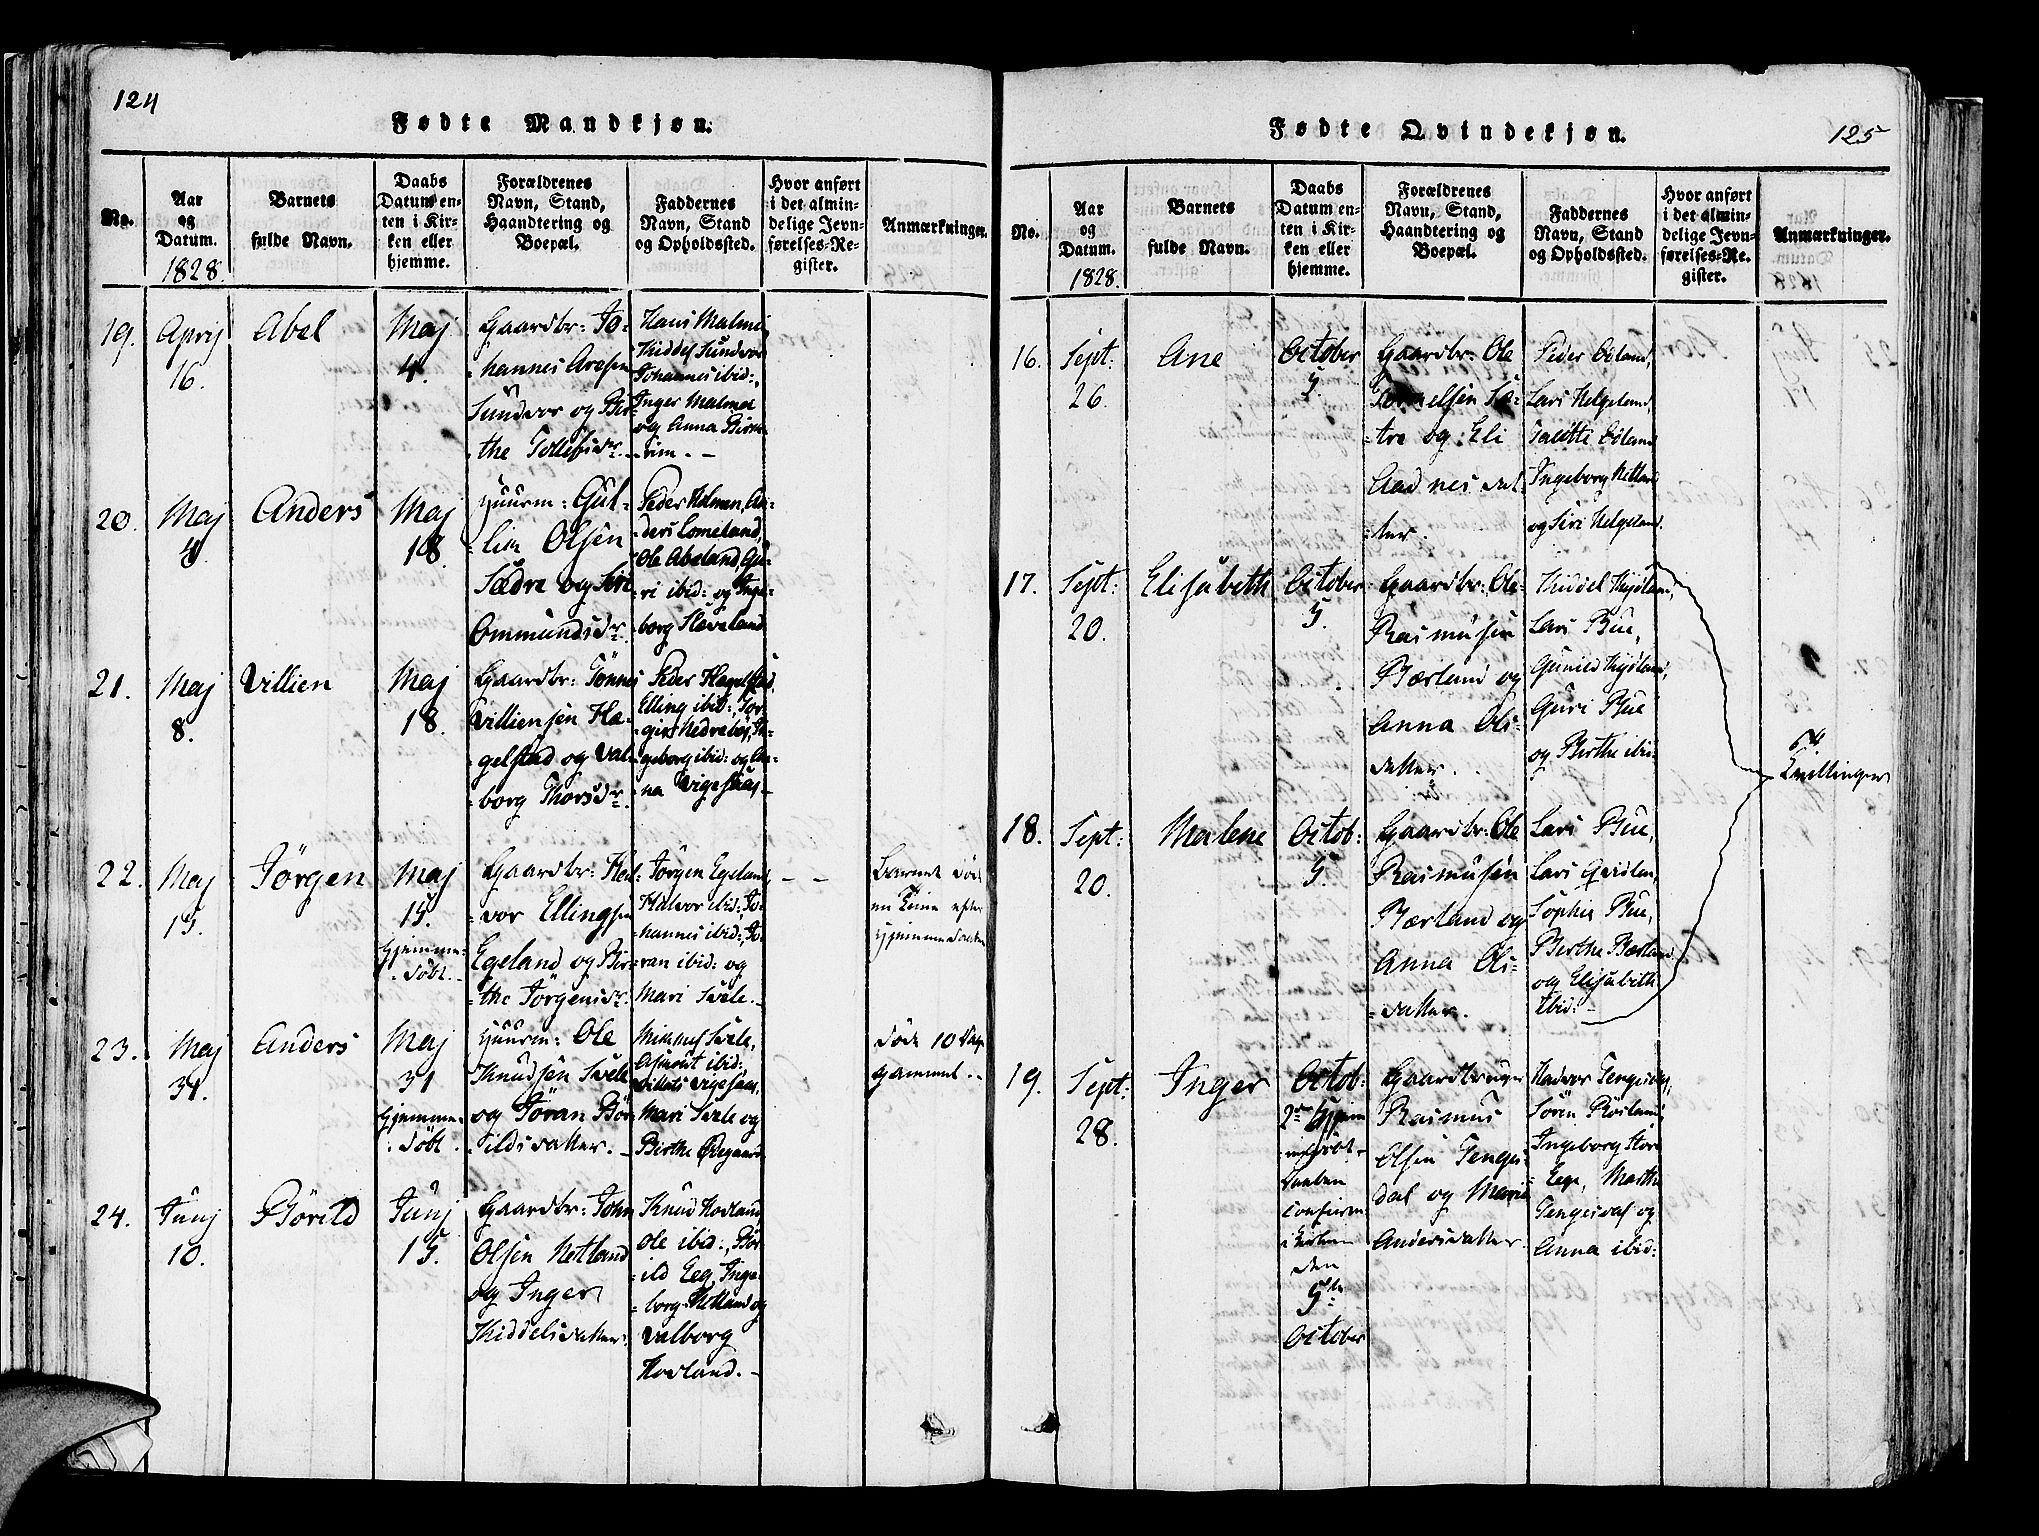 124
Fødte Mandkjøn.
No.
Aar
og
Datum.
1828.
Barnets
fulde Navn.
Daabs
Datum en-
ten i Kir-
ken eller
hjemme.
Forældrenes
Navn, Stand,
Haandtering og
Boepæl.
Faddernes
Navn, Stand
og Opholdssted.
Hvor anført
i det almin-
delige Jevn-
førelses-Re-
gister.
Anmærkninger.
19.
Aprij
16.
Abel
Maj
4.
Gaardbr: Jo-
-hannes Aresen
Sundvor og Bir-
-the Tollefsdr.
Hans Malmei,
Kiddel Sundvor
Johannes ibid:,
Inger Malmei
og Anna Birke-
-rim. -
20.
Maj
4
Anders
Maj
18.
Huusm: Gul-
-lik Olsen
Sædre og Siri
Ommundsdr.
Peder Holmen, An-
-ders Lomeland,
Ole Abeland, Gu-
-ri ibid: og Inge-
-borg Slæveland
21.
Maj
8.
Villien
Maj
18.
Gaardbr: Tønnes
Villiensen Hæ-
-gelstad og Val-
-borg Thorsdr.
Peder Hægelstad,
Elling ibid:, Tor-
-gier Nedrebøe, In-
-geborg ibid: og An-
-na Vigesaas
22.
Maj
15.
Jörgen
Maj
15.
Hjemme-
-döbt.
Gaardbr: Hal-
-vor Ellingsen
Egeland og Bir-
-the Jörgensdr.
Jörgen Egeland,
Halvor ibid:, Jo-
-hannes ibid:, Jö-
-ran ibid: og
Mari Svele.
- -
Barnet döde
en Time efter
Hjemmedaaben
23.
Maj
31.
Anders
Maj
31
Hjemme-
-döbt.
Huusm: Ole
Knudsen Svele
og Jöran Bör-
-ildsdatter. -
Mikkel Svele,
Asmoit ibid:
Vigesaas,
Mari Svele og
Birthe Ødegaard
döde 10 Dage
gammel.
24.
Junj
10.
Börild
Junj
15.
Gaardbr: John
Olsen Netland
og Inger
Kiddelsdatter.
Knud Hovland,
Ole ibid:, Bör-
-ild Eeg, Inge-
-borg Netland og
Valborg
Hovland. -
125
Fødte Qvindekjøn.
No.
Aar
og
Datum.
1828.
Barnets
fulde Navn.
Daabs
Datum en-
ten i Kir-
ken eller
hjemme.
Forældrenes
Navn, Stand,
Haandtering og
Boepæl.
Faddernes
Navn, Stand
og Opholdssted.
Hvor anført
i det almin-
delige Jevn-
førelses-Re-
gister.
Anmærkninger.
16.
Sept:
26.
Ane
October
5.
Gaardbr: Ole
Sæ-
-tre og Eli
Aadnesdat-
-ter.
Peder Odland,
Lars Helgeland,
Odland
Ingeborg Netland
og Siri Helgeland.
17.
Sept:
20.
Elisabeth
October
5.
Gaardbr: Ole
Rasmusen
Bærland og
Anna Ols-
datter.
Kiddel Kydland,
Lars Bue,
Gunild Kydland,
Guri Bue
og Birthe ibid:
Tvillinger
18.
Sept:
20.
Malene
Octob:
5.
Gaardbr: Ole
Rasmusen
Bærland og
Anna Ols-
-datter.
Lars Bue,
Lars Qvidlen,
Sophie Bue,
Birthe Bærland
og Elisabeth
ibid: -
19.
Sept:
28.
Inger
Octob:
2den hjem-
medöbt.
Daaben
confirm
i Kirken
den
5te
October
Gaardbruger
Rasmus
Olsen Tenges-
dal og Marie
Andersdatter.
Hadvor Tengesdal,
Sören Röisland,
Ingeborg Store
Eege, Marthe
Tengesdal og
Anna ibid: